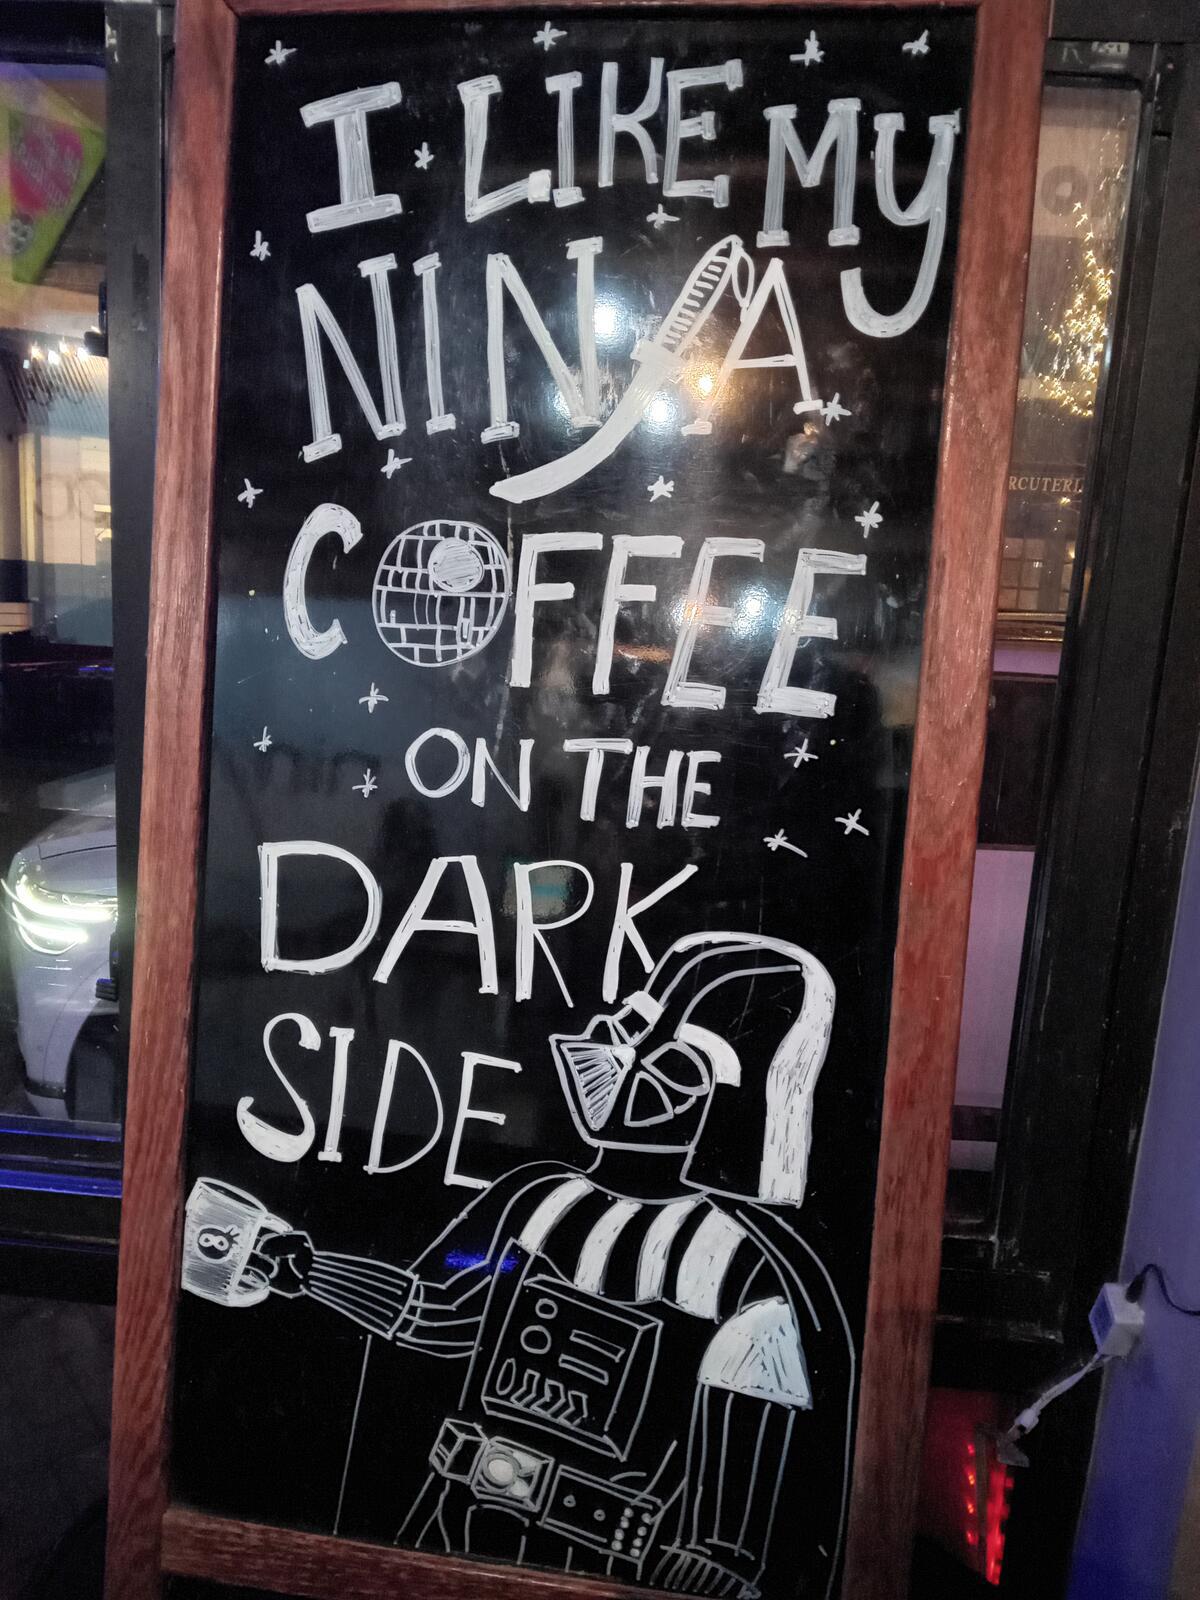 I LIKE MY
NINJA
COFFEE
ON THE
DARK
SIDE
8
RCUTERI